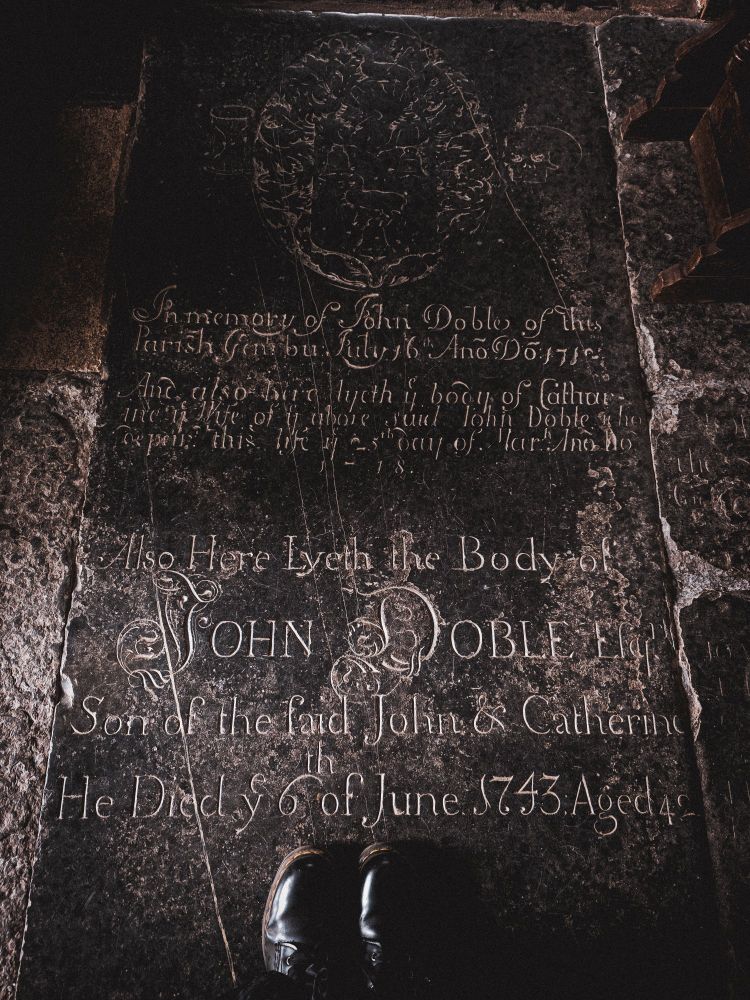 In memory of John Doble of this
Parish Gent bu: July 16th Anõ Dõ: 171
And also here lyeth yͤ body of Cathar-
ine yͤ Wife of yͤ above said John Doble who
this life yͤ 5th day of Anõ Dõ
1 18.
Also Here Lyeth the Body of
JOHN DOBLE Esqr
Son of the ſaid John & Catherine
He Died yͤ 6th of June 1743: Aged 42
the